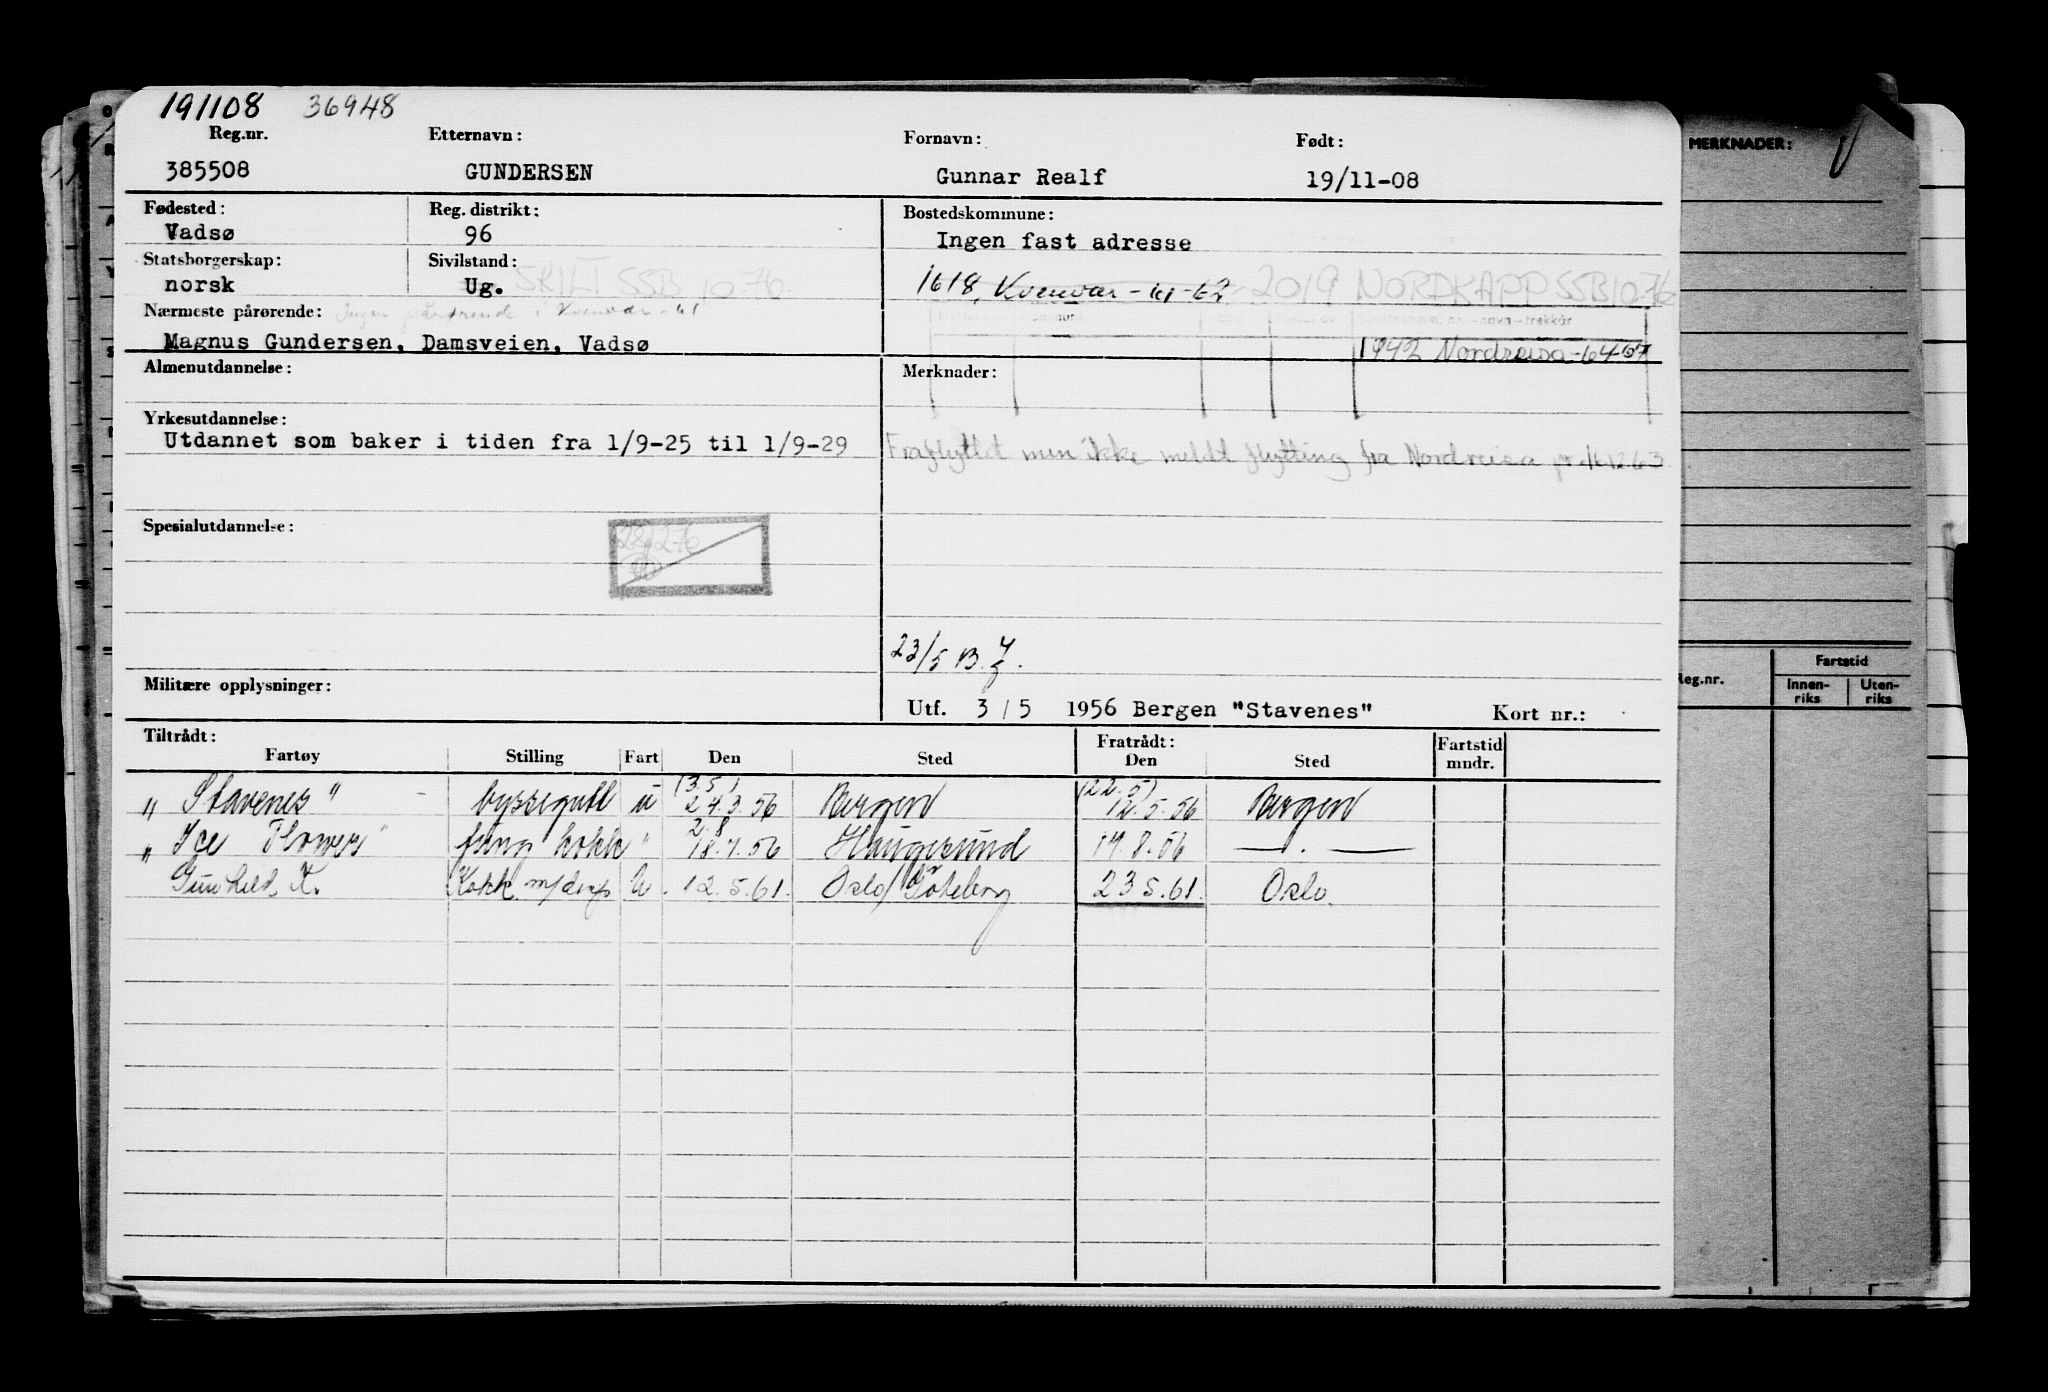 191108 36948
Reg.nr. Etternavn: Fornavn: Født:
385508 GUNDERSEN Gunnar Realf 19/11-08
MERKNADER:
Fødested: Reg. distrikt: Bostedskommune:
Vadsø 96 Ingen fast adresse
Statsborgerskap: Sivilstand:
norsk Ug. SKILT SSB 10 76
1618, Kvenvær - 61-62 2019 NORDKAPP SSB 10 76
Nærmeste pårørende: Ingen pårørende i Kvenvær - 61
Magnus Gundersen, Damsveien, Vadsø
1942 Nordreisa - 64
Almenutdannelse: Merknader:
Yrkesutdannelse:
Utdannet som baker i tiden fra 1/9-25 til 1/9-29
Fraflyttet men ikke meldt flytting fra Nordreisa pr. 12 63
Spesialutdannelse:
23/5 B.
Militære opplysninger:
Utf. 3/5 1956 Bergen "Stavenes" Kort nr.:
Reg.nr. Fartstid
Innen-riks Uten-riks
Tiltrådt: Fratrådt:
Fartøy Stilling Fart Den Sted Den Sted Fartstid mndr.
(3.5) (22.5)
"Stavenes" byssegutt u 24.3.56 Bergen 12.5.56 Bergen
2.8
"Ice Flower" fung kokk " 18.7.56 Haugesund 14.8.56 — . —
Gunhild K. Kokk m/disp U. 12.5.61. Oslo/Göteborg 23 5.61. Oslo.